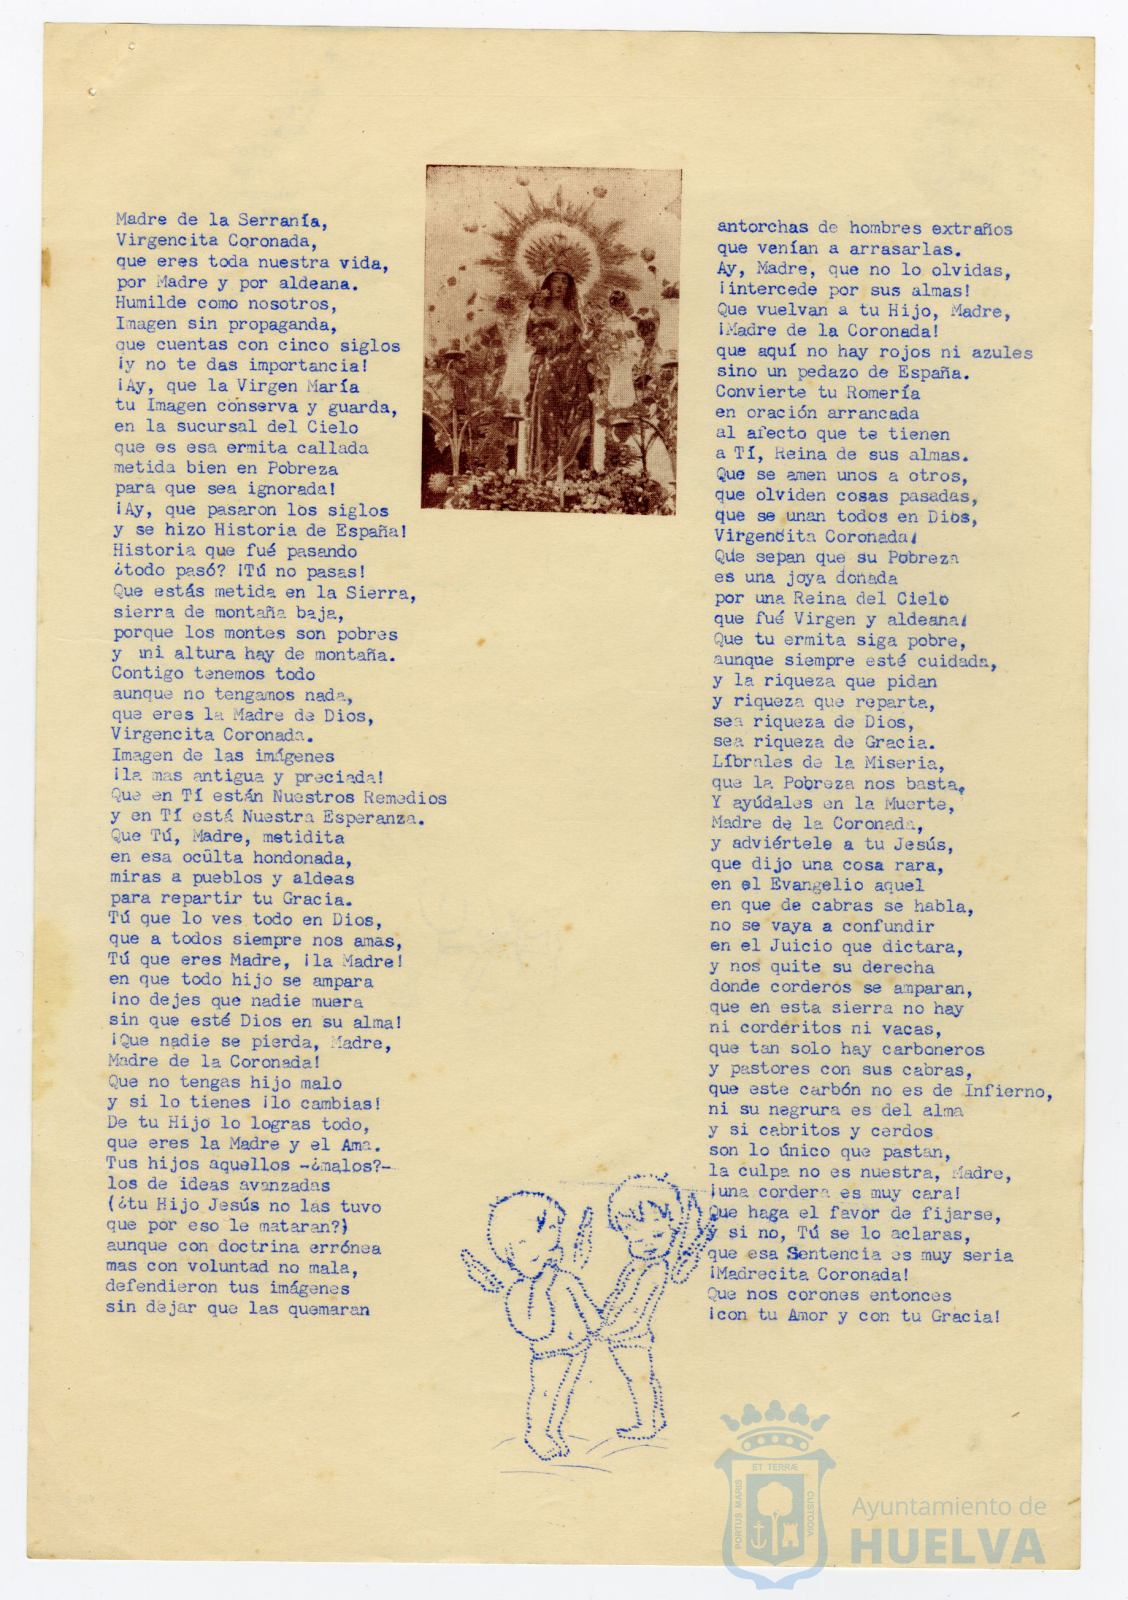 Madre de la Serranía,
Virgencita Coronada,
que eres toda nuestra vida,
por Madre y por aldeana.
Humilde como nosotros,
Imagen sin propaganda,
que cuentas con cinco siglos
¡y no te das importancia!
¡Ay, que la Virgen María
tu Imagen conserva y guarda,
en la sucursal del Cielo
que es esa ermita callada
metida bien en Pobreza
para que sea ignorada!
¡Ay, que pasaron los siglos
y se hizo Historia de España!
Historia que fué pasando
¿todo pasó? ¡Tú no pasas!
Que estás metida en la Sierra,
sierra de montaña baja,
porque los montes son pobres
y ni altura hay de montaña.
Contigo tenemos todo
aunque no tengamos nada,
que eres la Madre de Dios,
Virgencita Coronada.
Imagen de las imágenes
¡la mas antigua y preciada!
Que en Tí están Nuestros Remedios
y en Tí está Nuestra Esperanza.
Que Tú, Madre, metidita
en esa oculta hondonada,
miras a pueblos y aldeas
para repartir tu Gracia.
Tú que lo ves todo en Dios,
que a todos siempre nos amas,
Tú que eres Madre, ¡la Madre!
en que todo hijo se ampara
¡no dejes que nadie muera
sin que esté Dios en su alma!
¡Que nadie se pierda, Madre,
Madre de la Coronada!
Que no tengas hijo malo
y si lo tienes ¡lo cambias!
De tu Hijo lo logras todo,
que eres la Madre y el Ama.
Tus hijos aquellos -¿malos?-
los de ideas avanzadas
(¿tu Hijo Jesús no las tuvo
que por eso le mataran?)
aunque con doctrina errónea
mas con voluntad no mala,
defendieron tus imágenes
sin dejar que las quemaran
antorchas de hombres extraños
que venían a arrasarlas.
Ay, Madre, que no lo olvidas,
¡intercede por sus almas!
Que vuelvan a tu Hijo, Madre,
¡Madre de la Coronada!
que aquí no hay rojos ni azules
sino un pedazo de España.
Convierte tu Romería
en oración arrancada
al afecto que te tienen
a Tí, Reina de sus almas.
Que se amen unos a otros,
que olviden cosas pasadas,
que se unan todos en Dios,
Virgencita Coronada!
Que sepan que su Pobreza
es una joya donada
por una Reina del Cielo
que fué Virgen y aldeana!
Que tu ermita siga pobre,
aunque siempre esté cuidada,
y la riqueza que pidan
y riqueza que reparta,
sea riqueza de Dios,
sea riqueza de Gracia.
Líbrales de la Miseria,
que la Pobreza nos basta,
Y ayúdales en la Muerte,
Madre de la Coronada,
y adviértele a tu Jesús,
que dijo una cosa rara,
en el Evangelio aquel
en que de cabras se habla,
no se vaya a confundir
en el Juicio que dictara,
y nos quite su derecha
donde corderos se amparan,
que en esta sierra no hay
ni corderitos ni vacas,
que tan solo hay carboneros
y pastores con sus cabras,
que este carbón no es de Infierno,
ni su negrura es del alma
y si cabritos y cerdos
son lo único que pastan,
la culpa no es nuestra, Madre,
¡una cordera es muy cara!
Que haga el favor de fijarse,
y si no, Tú se lo aclaras,
que esa Sentencia es muy seria
¡Madrecita Coronada!
Que nos corones entonces
¡con tu Amor y con tu Gracia!
PORTUS MARIS ET TERRÆ CUSTODIA
Ayuntamiento de
HUELVA